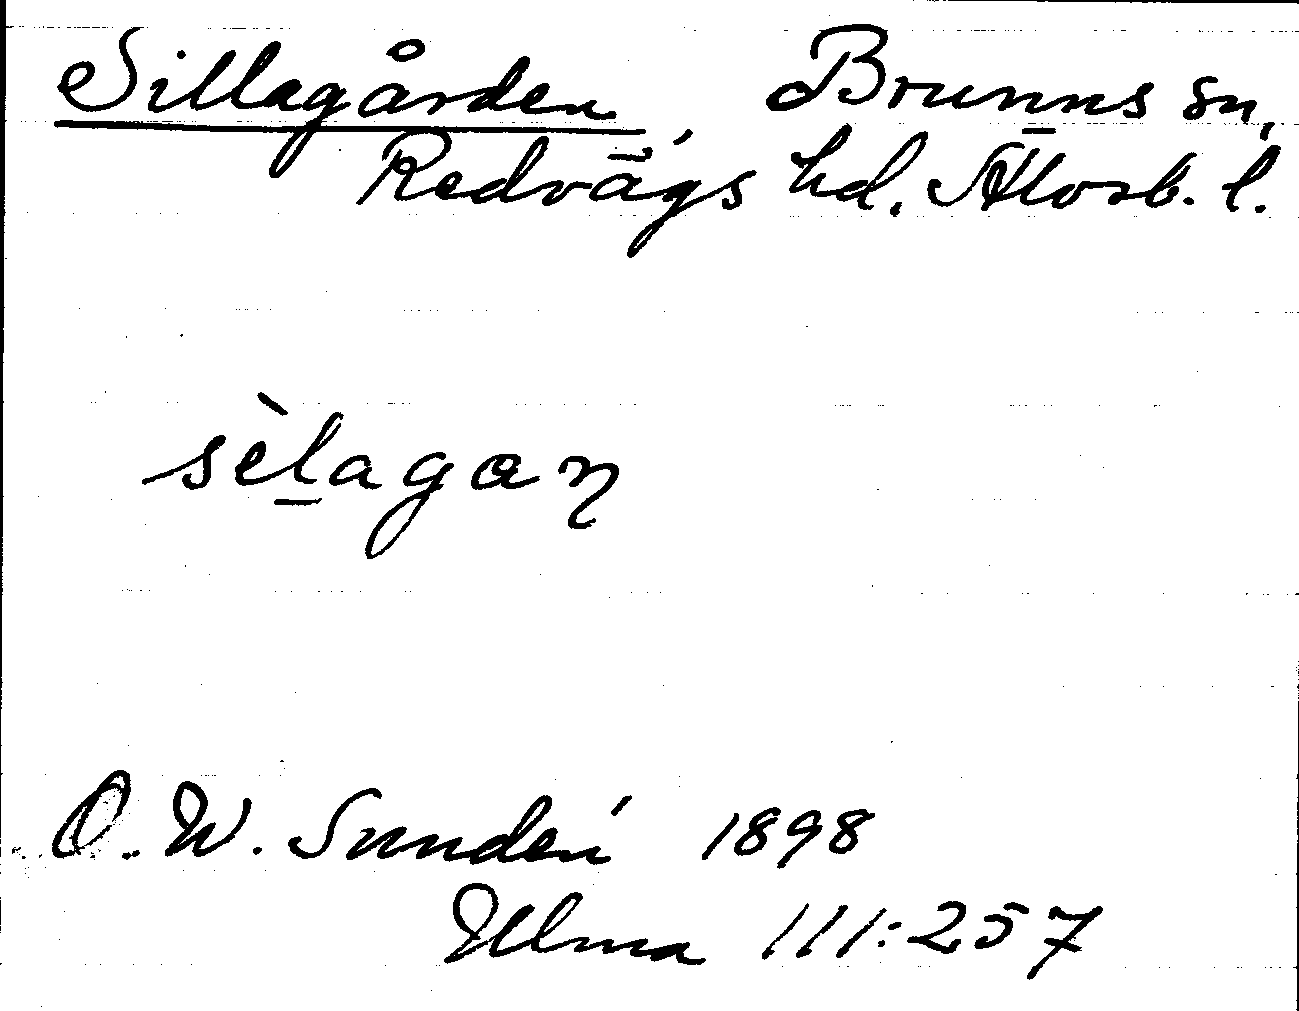 Sillagården, Brunns sn,
Redvägs hd. Älvsb. l.
sèḻagaɳ
O. W. Sundén 1898
Ulma 111:257